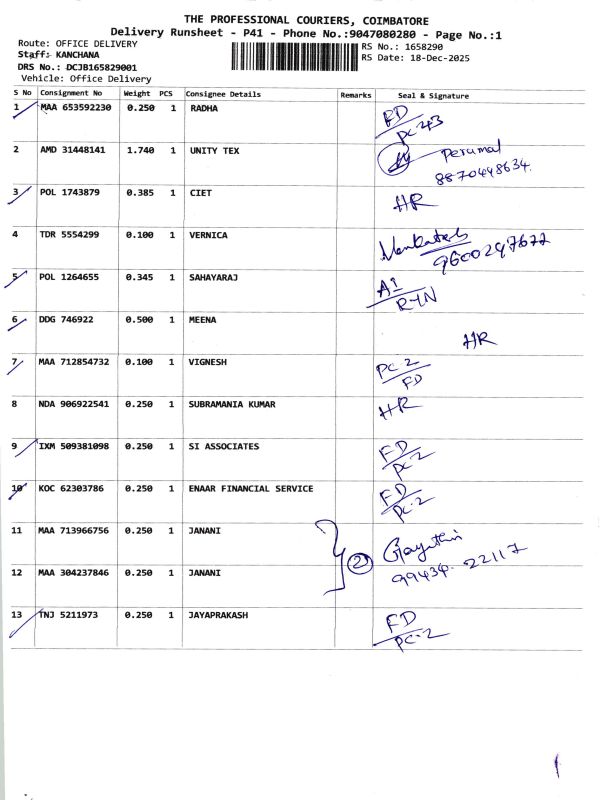 THE PROFESSIONAL COURIERS, COIMBATORE
Delivery Runsheet - P41 - Phone No.:9047080280 - Page No.:1
Route: OFFICE DELIVERY
RS No.: 1658290
Staff: KANCHANA
RS Date: 18-Dec-2025
DRS No.: DCJB165829001
Vehicle: Office Delivery
S No Consignment No Weight PCS Consignee Details Remarks Seal & Signature
1 MAA 653592230 0.250 1 RADHA FD
PC-43
2 AMD 31448141 1.740 1 UNITY TEX Perumal
8870448634.
3 POL 1743879 0.385 1 CIET HR
4 TDR 5554299 0.100 1 VERNICA
9600297677
5 POL 1264655 0.345 1 SAHAYARAJ A1
RTN
6 DDG 746922 0.500 1 MEENA HR
7 MAA 712854732 0.100 1 VIGNESH PC-2
FD
8 NDA 906922541 0.250 1 SUBRAMANIA KUMAR HR
9 IXM 509381098 0.250 1 SI ASSOCIATES FD
PC-2
10 KOC 62303786 0.250 1 ENAAR FINANCIAL SERVICE FD
PC-2
11 MAA 713966756 0.250 1 JANANI Gayathri
2 99434-22117
12 MAA 304237846 0.250 1 JANANI
13 TNJ 5211973 0.250 1 JAYAPRAKASH FD
PC-2